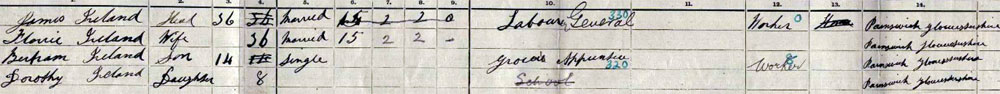 James Ireland Head 36 Married 15 2 2 0 Labourer General 330 Worker 0 Painswick Gloucestershire
Florrie Ireland Wife 36 Married 15 2 2 - Painswick Gloucestershire
Bertram Ireland Son 14 Single Grocers Apprentice 320 Worker Painswick Gloucestershire
Dorothy Ireland Daughter 8 School Painswick Gloucestershire